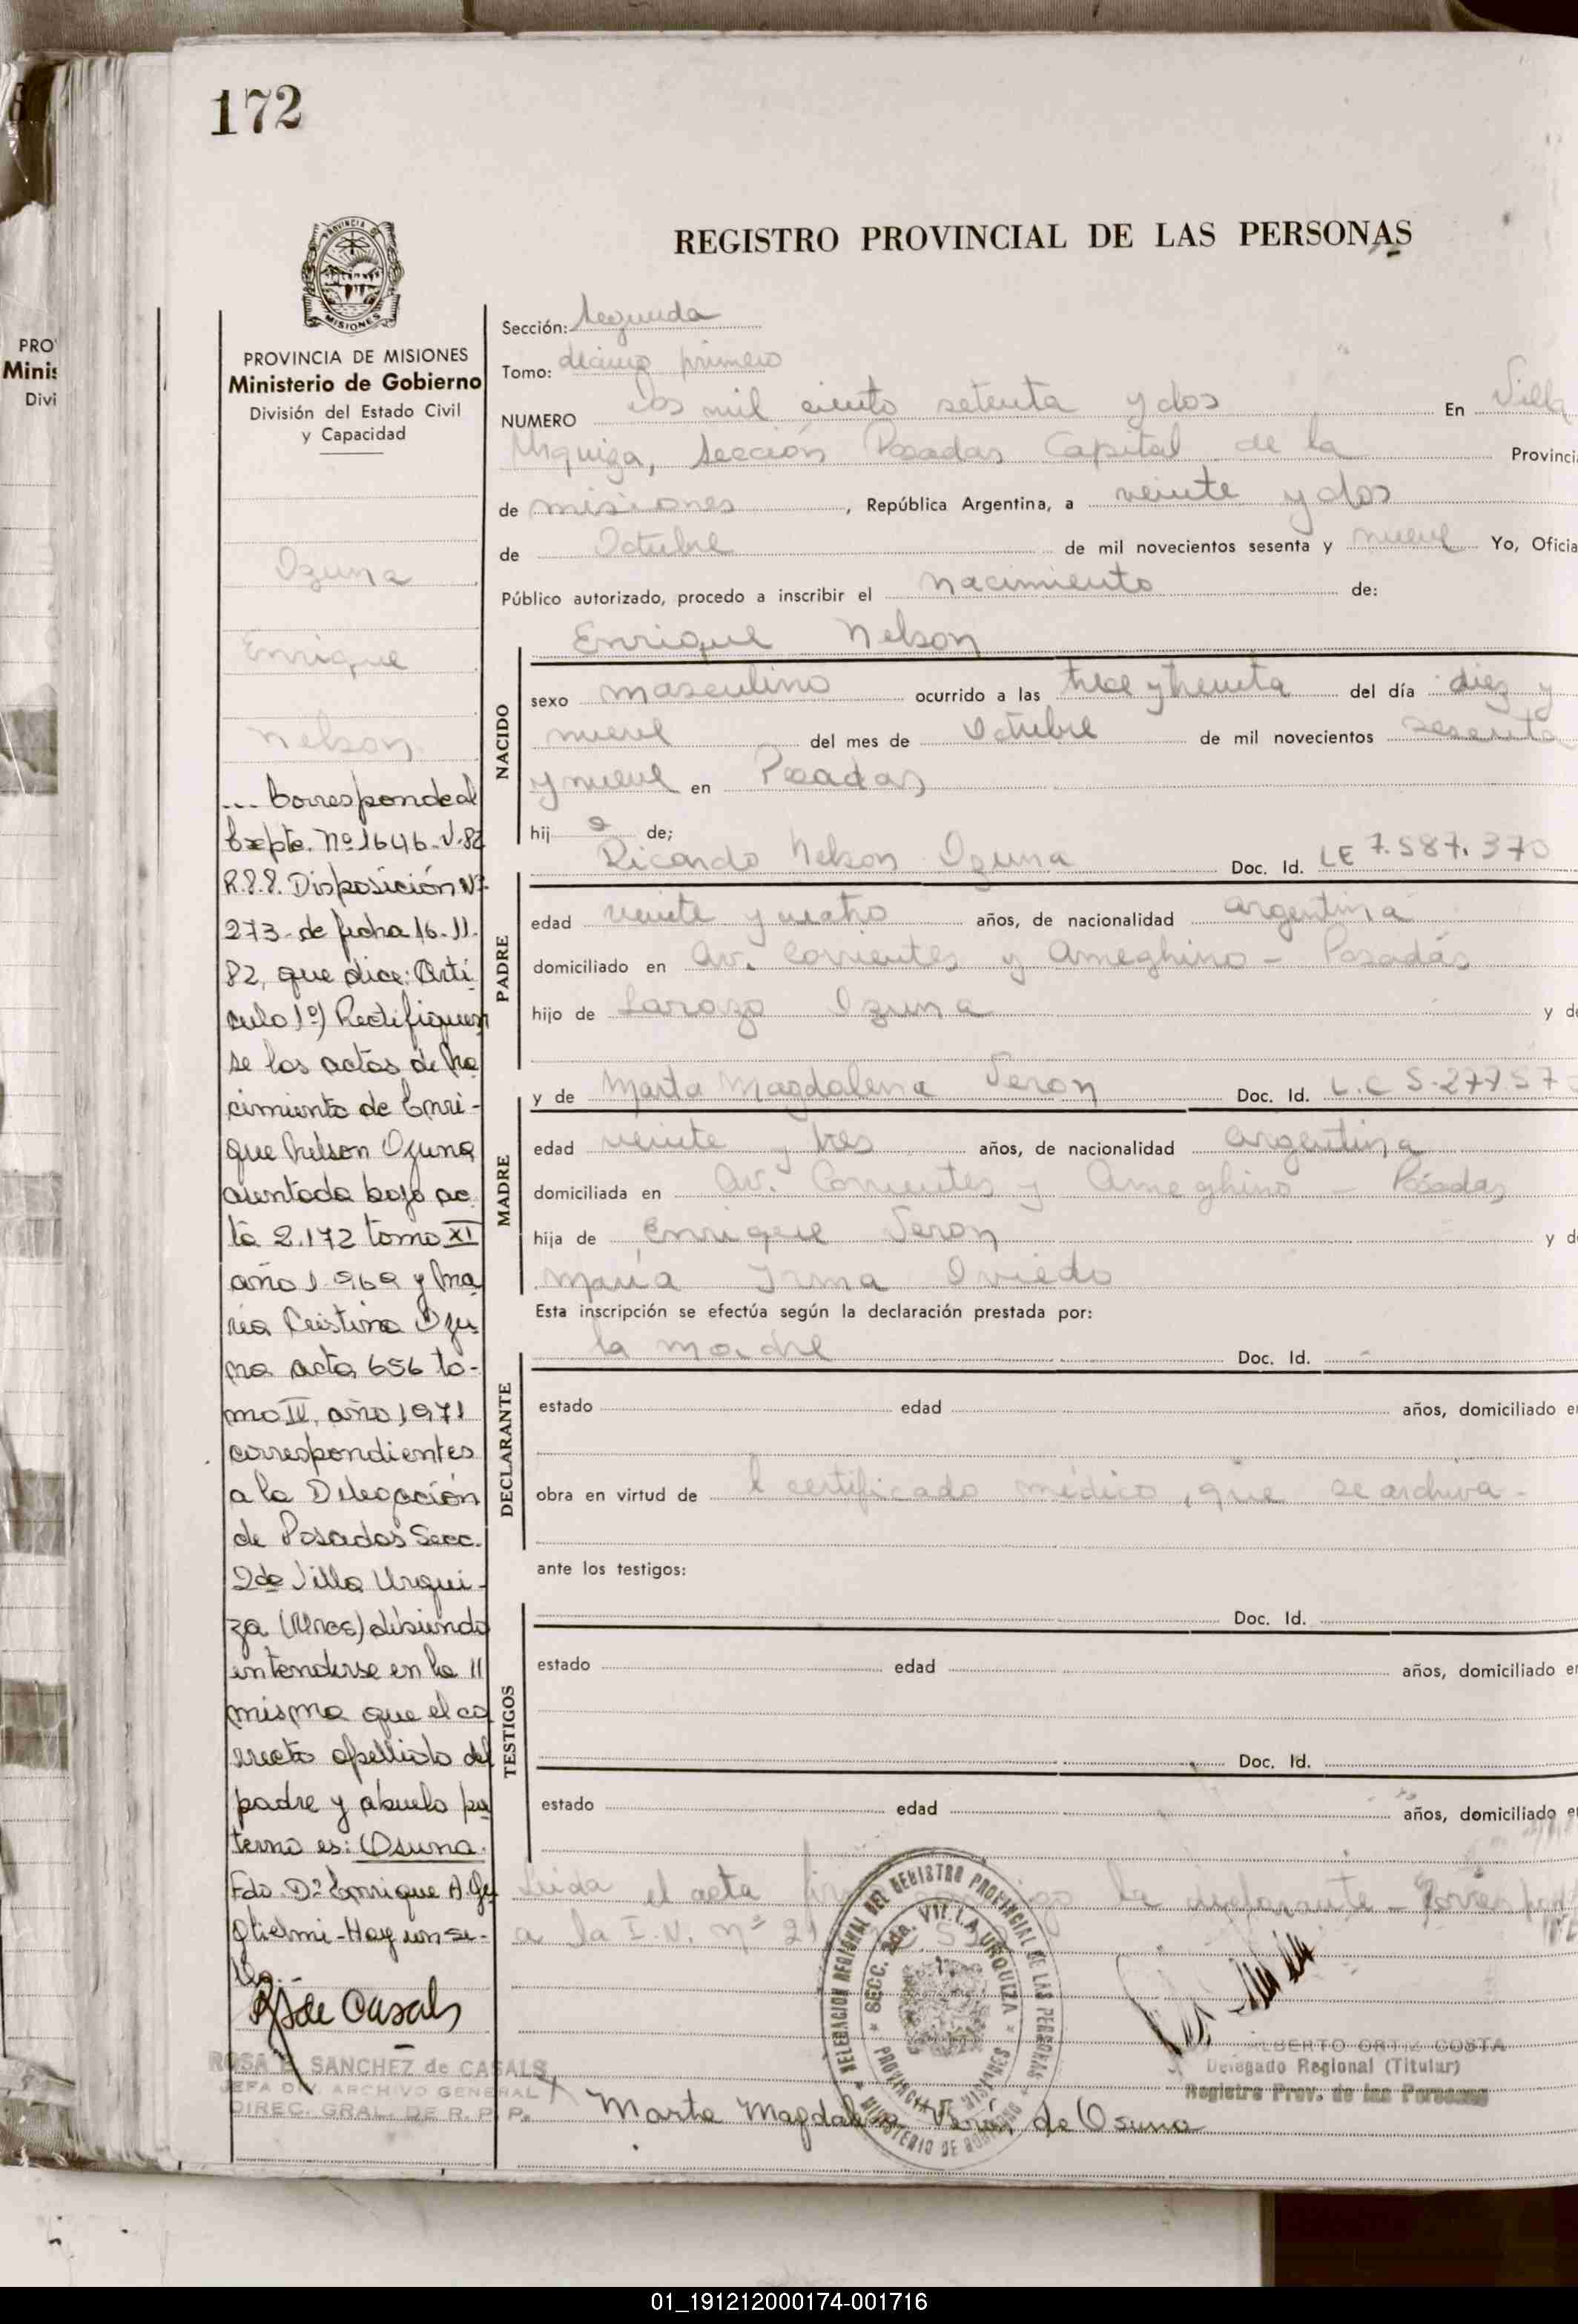 172
REGISTRO PROVINCIAL DE LAS PERSONAS
PROVINCIA DE MISIONES
Ministerio de Gobierno
División del Estado Civil
y Capacidad
Ozuna
Enrique
Nelson
... Corresponde al
Expte. Nº 1646-V-82
R.P.P. Disposición Nº
273 de fecha 16-11-
82, que dice: Artí
culo 1º) Rectifiquen
se las actas de Na
cimiento de Enri-
que Nelson Ozuna
asentada bajo ac
ta 2.172 tomo XI
año 1.969 y Ma
ria Cristina Ozu
na acta 656 to-
mo IV, año 1971
correspondientes
a la Delegación
de Posadas Secc.
2da Villa Urqui-
za (Mnes) debiendo
entenderse en la
misma que el co
rrecto apellido del
padre y abuelo pa
terno es: Osuna.
Fdo. Dº Enrique A. Gu
glielmi - Hay un se-
llo.-
R S de Casals
ROSA SANCHEZ de CASALS
JEFA DIV. ARCHIVO GENERAL
DIREC. GRAL. DE R. P. P.
Sección: Segunda
Tomo: décimo primero
NUMERO dos mil ciento setenta y dos En Villa
Urquiza, Sección Posadas Capital de la Provinci
de misiones, República Argentina, a veinte y dos
de Octubre de mil novecientos sesenta y nueve Yo, Oficia
Público autorizado, procedo a inscribir el nacimiento de:
Enrique Nelson
NACIDO
sexo masculino ocurrido a las trece y treinta del día diez y
nueve del mes de Octubre de mil novecientos sesenta
y nueve en Posadas
hij o de;
Ricardo Nelson Ozuna Doc. Id. LE 7.587.370
PADRE
edad veinte y cuatro años, de nacionalidad argentina
domiciliado en Av. Corrientes y Ameghino - Posadas
hijo de Larozo Ozuna y d
y de Marta Magdalena Veron Doc. Id. L.C 5.277.57
MADRE
edad veinte y tres años, de nacionalidad argentina
domiciliada en Av. Corrientes y Ameghino - Posadas
hija de Enrique Veron y d
María Irma Oviedo
Esta inscripción se efectúa según la declaración prestada por:
la madre Doc. Id. -
DECLARANTE
estado edad años, domiciliado e
obra en virtud de l certificado médico, que se archiva -
ante los testigos:
Doc. Id.
TESTIGOS
estado edad años, domiciliado e
Doc. Id.
estado edad años, domiciliado e
Leida el acta la declarante -
a la I.N. nº
DELEGACION REGIONAL DEL REGISTRO PROVINCIAL DE LAS PERSONAS
SECC. 2da. VILLA URQUIZA
PROVINCIA DE MISIONES
MINISTERIO DE GOBIERNO
ALBERTO ORTIZ COSTA
Delegado Regional (Titular)
Registro Prov. de las Personas
Marta Magdalena Verón de Osuna
PRO
Minis
Divi
01_191212000174-001716